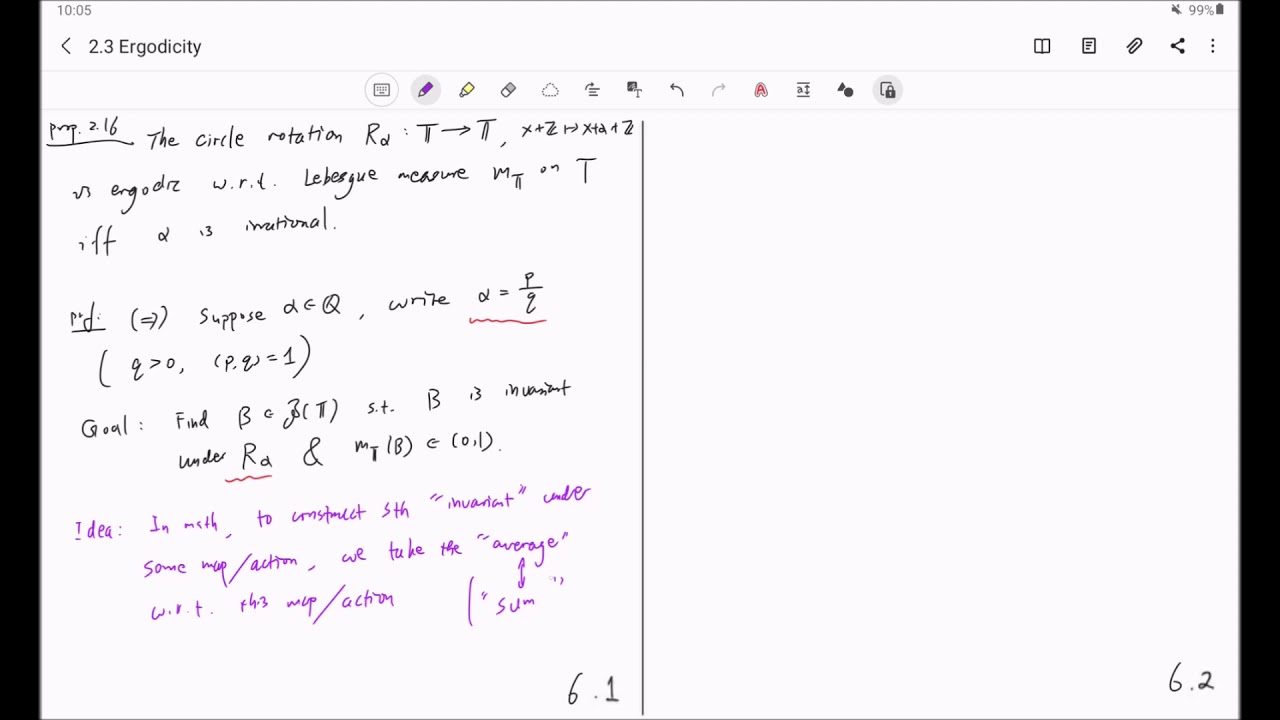 10:05
99%
2.3 Ergodicity
prop. 2.16 The circle rotation Rα : 𝕋 → 𝕋, x+ℤ ↦ x+α+ℤ
is ergodic w.r.t. Lebesgue measure m_𝕋 on 𝕋
iff α is irrational.
prf: (⇒) Suppose α ∈ ℚ, write α = p/q
( q>0, (p,q)=1 )
Goal: Find B ∈ ℬ(𝕋) s.t. B is invariant
under Rα & m_𝕋(B) ∈ (0,1).
Idea: In math, to construct sth "invariant" under
some map/action, we take the "average"
w.r.t. this map/action ( "sum"
6.1
6.2